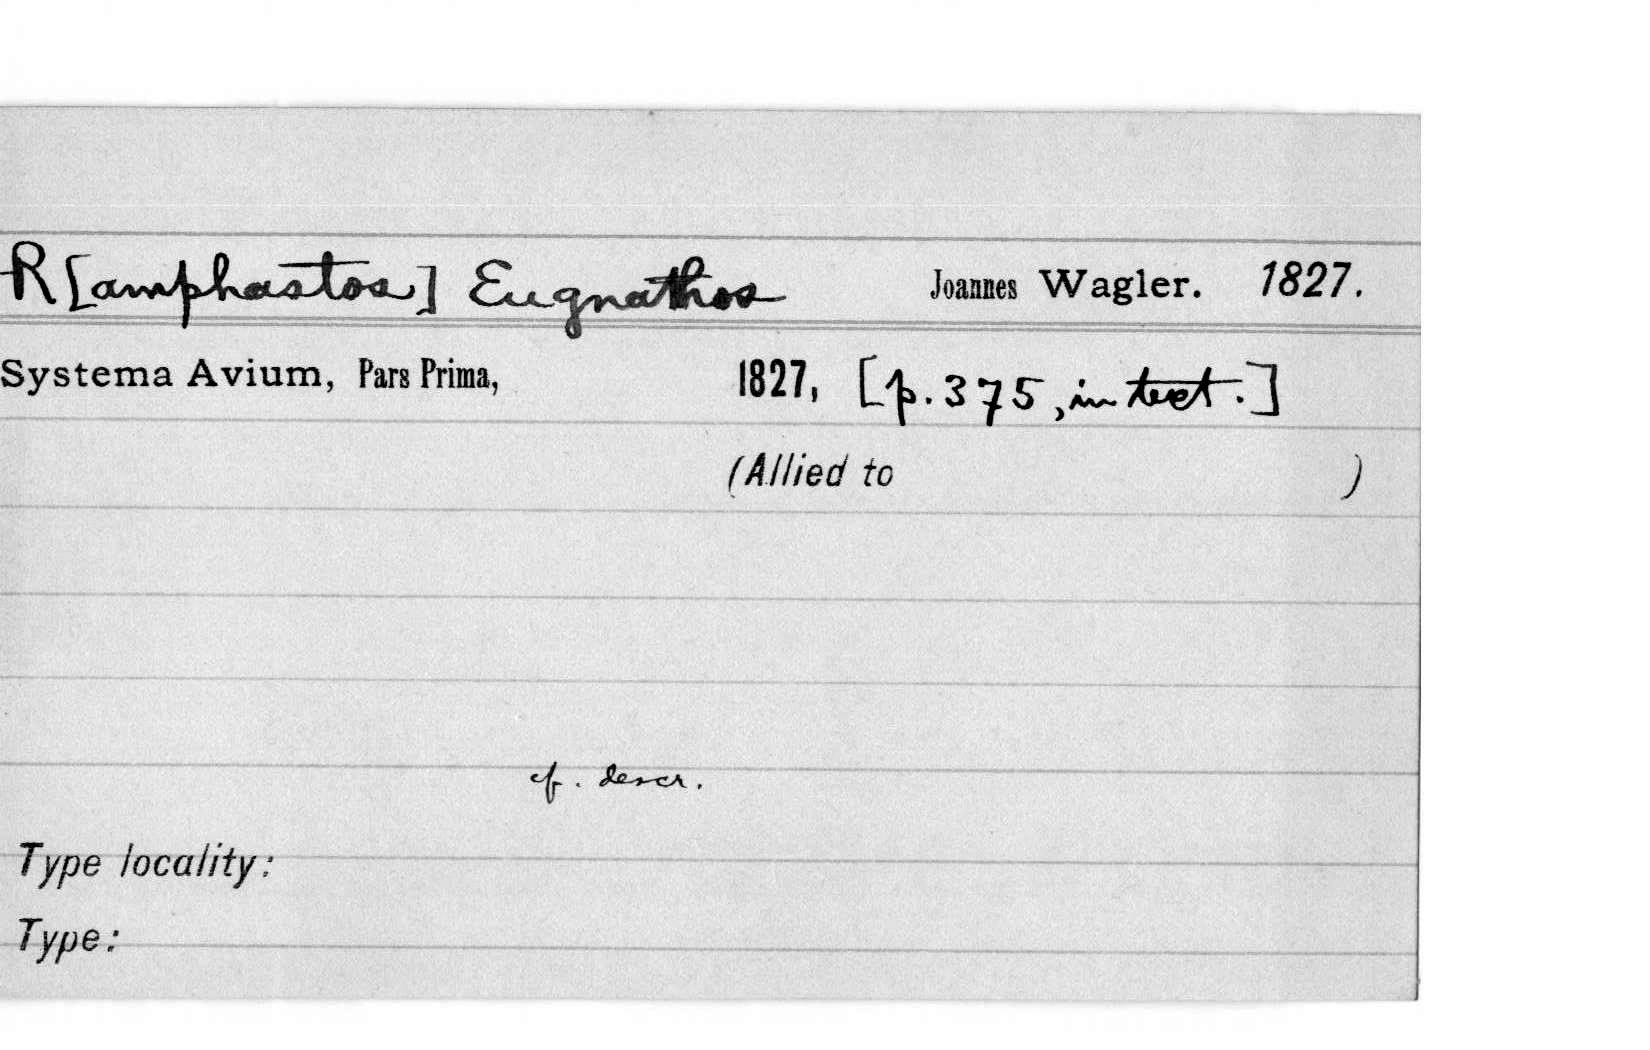 R[amphastos] Eugnathos Joannes Wagler. 1827.
Systema Avium, Pars Prima, 1827, [p. 375, in text.]
(Allied to )
cf. descr.
Type locality:
Type: